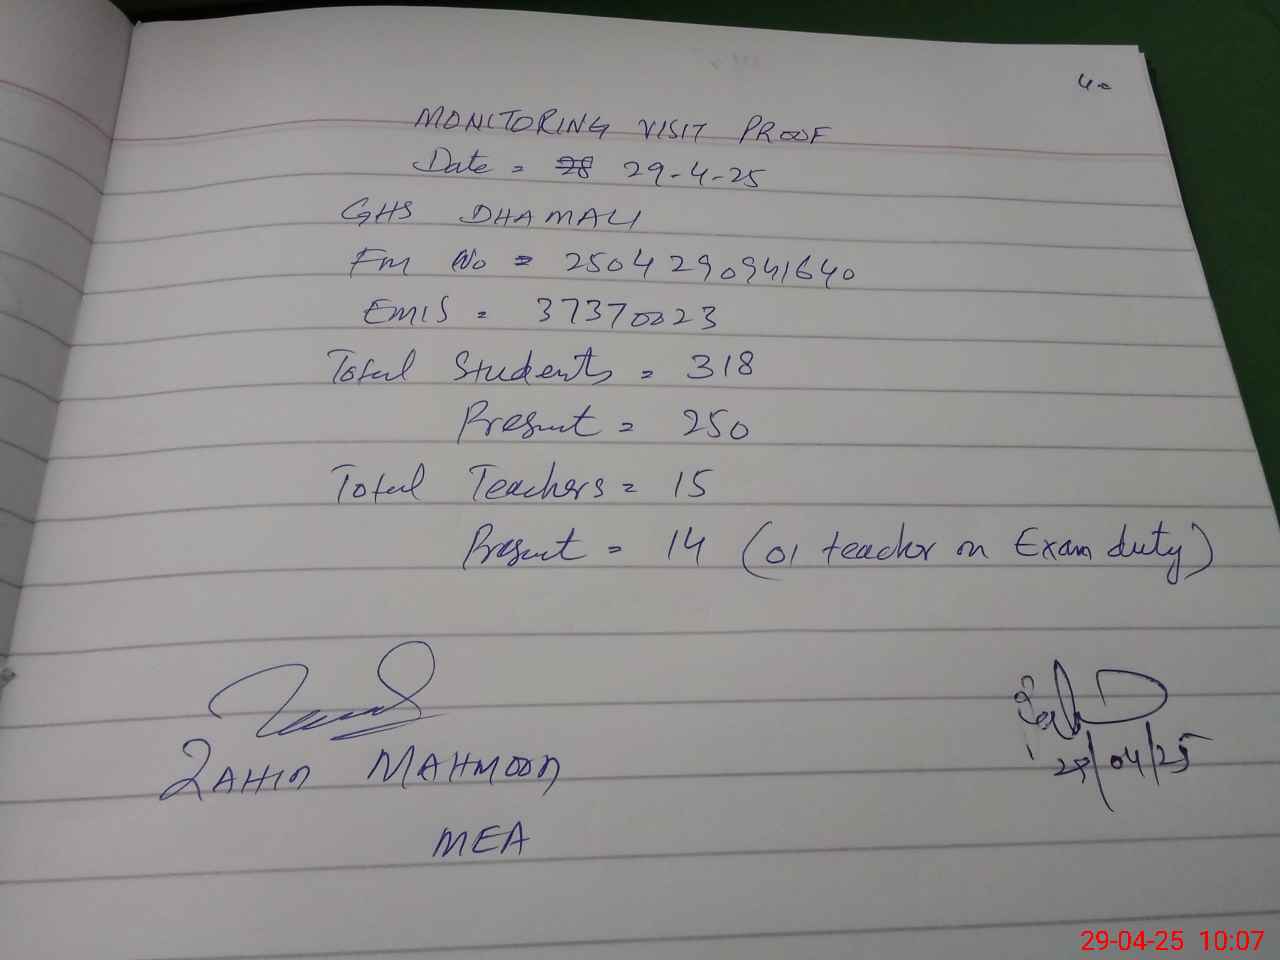 40
MONITORING VISIT PROOF
Date = 28 29-4-25
GHS DHAMALI
Fm No = 2504290941640
EMIS = 37370023
Total Students = 318
Present = 250
Total Teachers = 15
Present = 14 (01 teacher on Exam duty)
ZAHID MAHMOOD
29/04/25
MEA
29-04-25 10:07